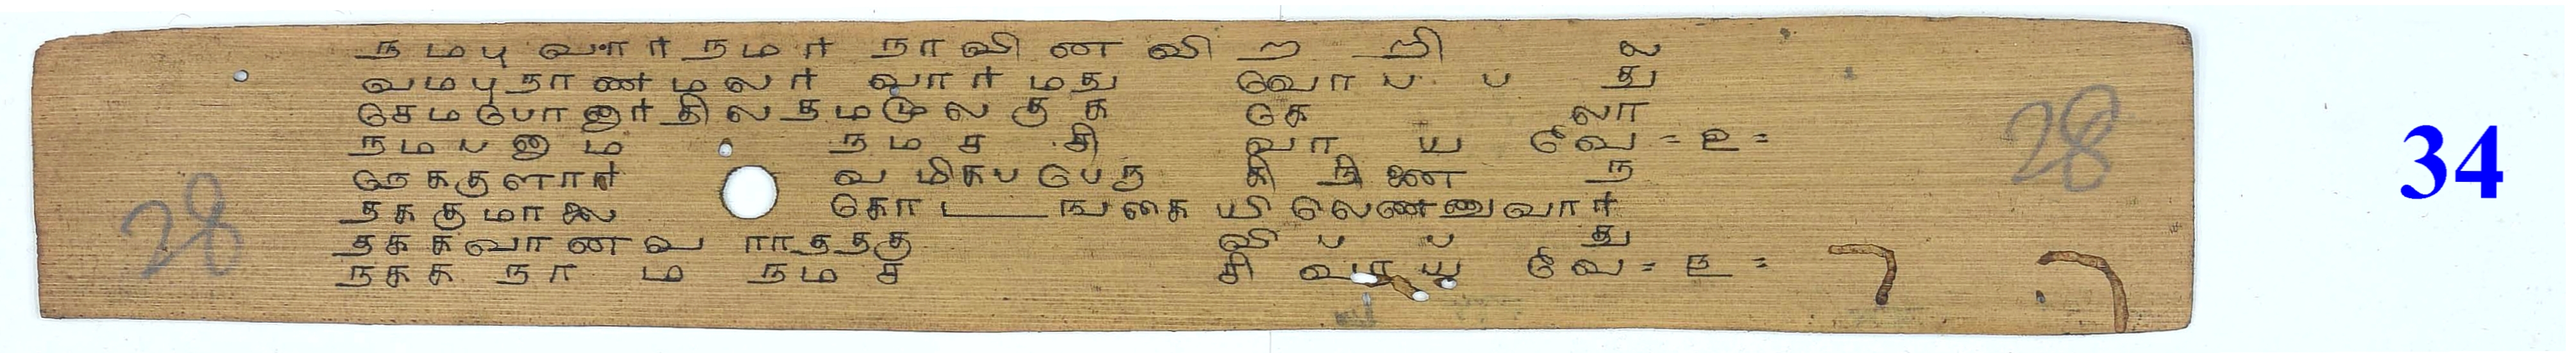 நமபுவாரநமர நாவின விறறில
வமபுநாணமலர வார மது வோபபது
செமபொனூரதிலதமமுலகுககெலா
நமபனும நமசசிவாயவே = ௨ =
நெககுளாரவ மிகபபெருகிநினைந
தககுமாலைகொடஙகையிலெணணுவார
தககவானவராதததகுவிபபது
நககநாம நமசசிவாயவே = ௩ =
28
28
34